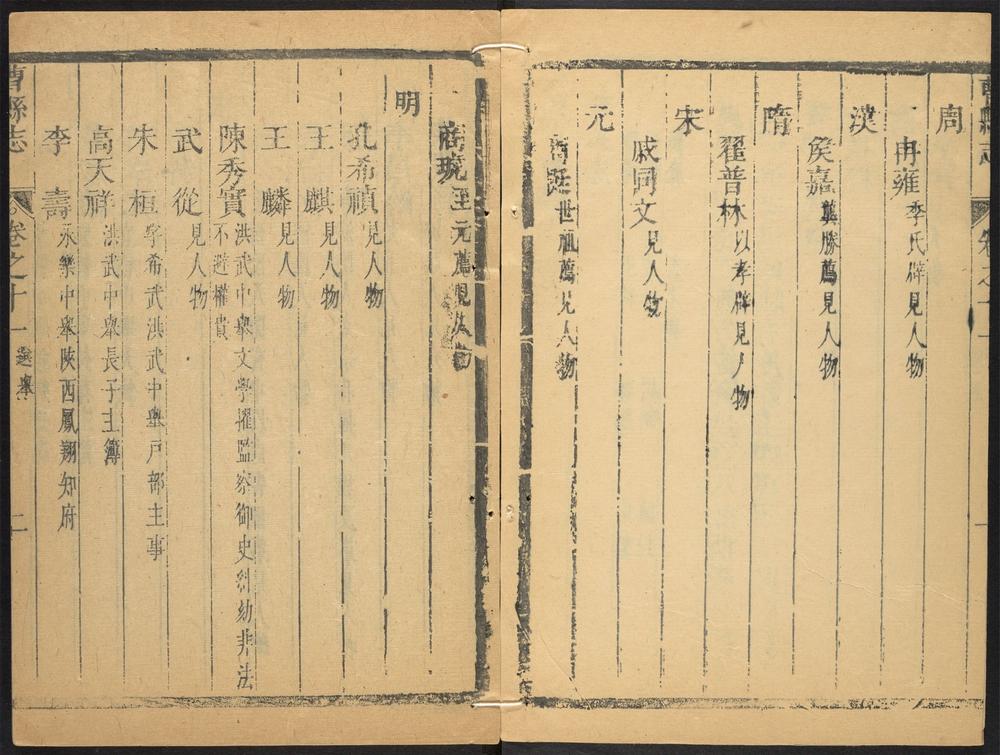 周
冉雍 季氏辟見人物
漢
侯嘉 龔勝薦見人物
隋
翟普林 以孝辟見人物
宋
戚同文 見人物
元
商挺 世祖薦見人物
商琥 元薦見人物
明
孔希禎 見人物
王麒 見人物
王麟 見人物
陳秀實 洪武中舉文學擢監察御史糾劾非法
不避權貴
武從 見人物
朱桓 字希武洪武中舉戶部主事
高天祥 洪武中舉長子主簿
李壽 永樂中舉陝西鳳翔知府
曹縣志 卷之十一 選舉 二